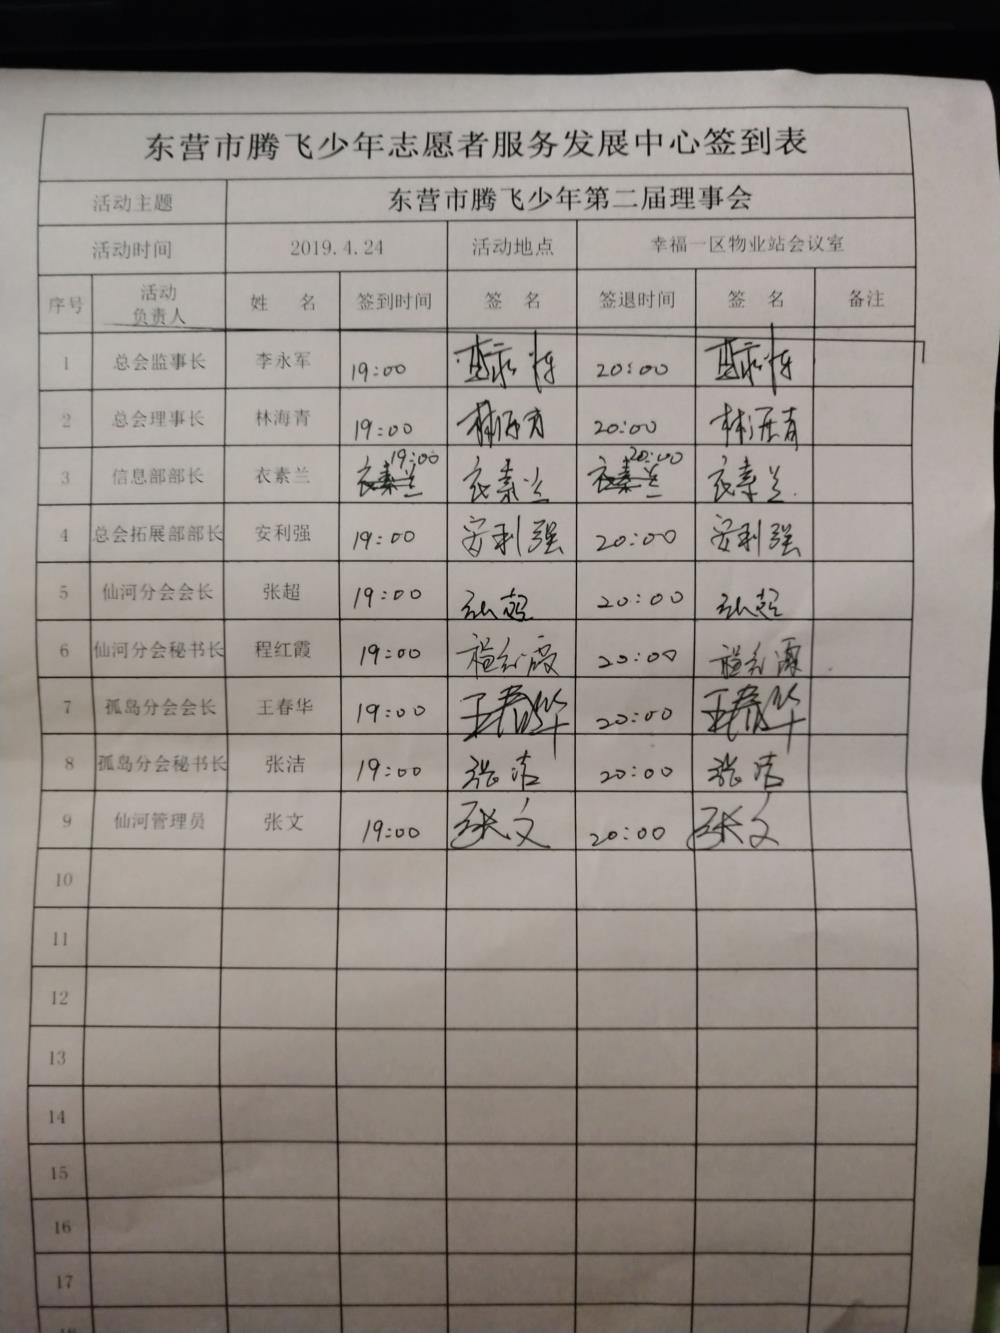 东营市腾飞少年志愿者服务发展中心签到表
活动主题 东营市腾飞少年第二届理事会
活动时间 2019.4.24 活动地点 幸福一区物业站会议室
序号 活动负责人 姓 名 签到时间 签 名 签退时间 签 名 备注
1 总会监事长 李永军 19:00 20:00
2 总会理事长 林海青 19:00 林海青 20:00 林海青
3 信息部部长 衣素兰 19:00 衣素兰 衣素兰 20:00 衣素兰 衣素兰
4 总会拓展部部长 安利强 19:00 安利强 20:00 安利强
5 仙河分会会长 张超 19:00 张超 20:00 张超
6 仙河分会秘书长 程红霞 19:00 程红霞 20:00 程红霞
7 孤岛分会会长 王春华 19:00 王春华 20:00 王春华
8 孤岛分会秘书长 张洁 19:00 张洁 20:00 张洁
9 仙河管理员 张文 19:00 张文 20:00 张文
10
11
12
13
14
15
16
17